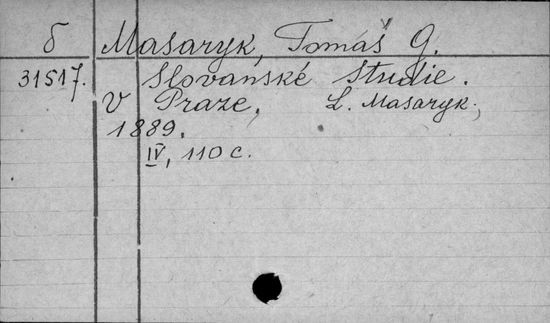 б Masaryk, Tomáš G.
31517. Slovanské studie.
V Praze, L. Masaryk,
1889.
IV, 110 c.